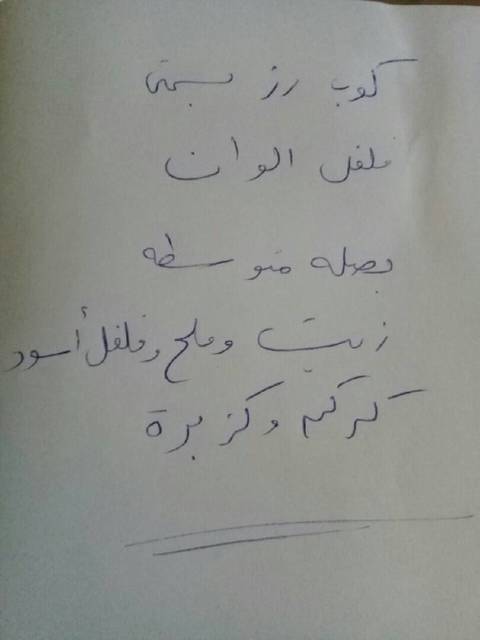 كوب رز بسمتى
فلفل الوان
بصله متوسطه
زيت وملح وفلفل أسود
كركم وكزبرة